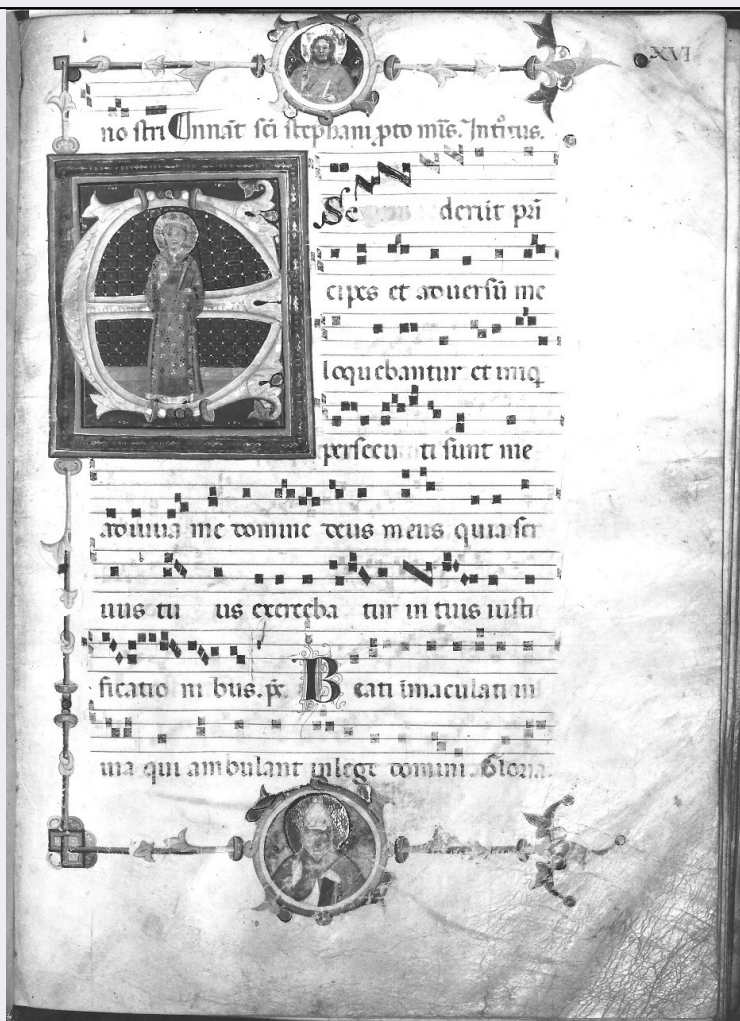 XVI
no stri Innat sci stephani pto mris. Introitus.
Se derūt pri
cipes et aduersū me
loquebantur et iniq
persecu ti sunt me
adiuua me domine deus meus quia ser
uus tu us exerceba tur in tuis iusti
ficatio ni bus. ps. Beati īmaculati in
uia qui ambulant in lege domini. Gloria.